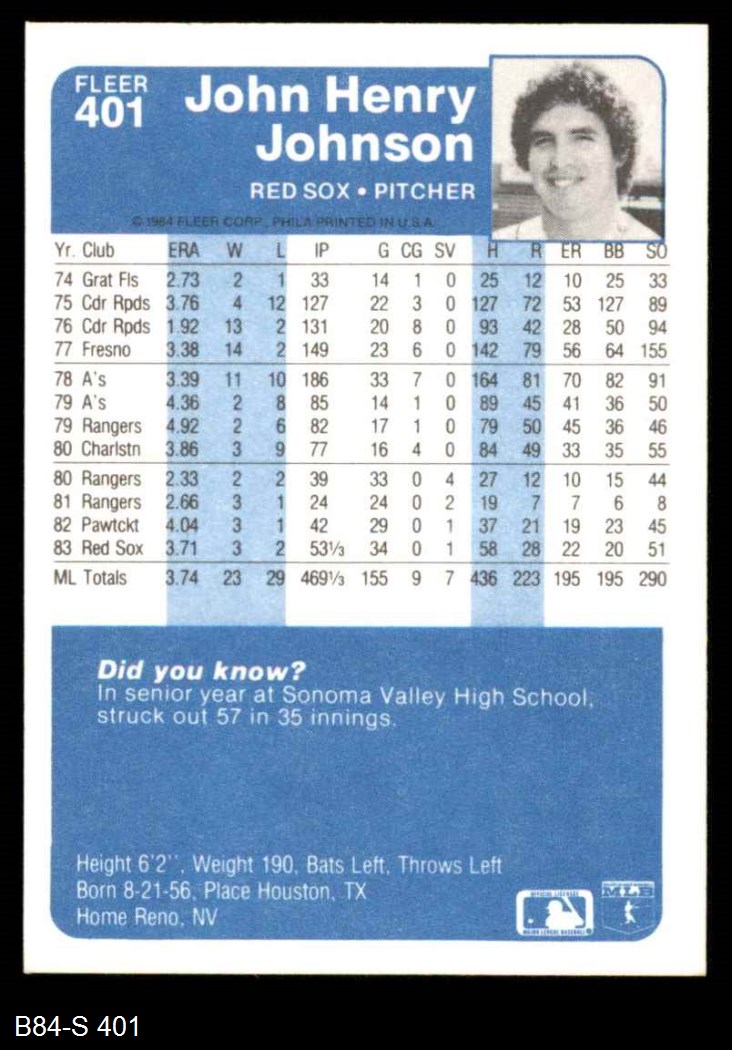 FLEER
401
John Henry
Johnson
RED SOX • PITCHER
© 1984 FLEER CORP., PHILA PRINTED IN U.S.A.
Yr. Club ERA W L IP G CG SV H R ER BB SO
74 Grat Fls 2.73 2 1 33 14 1 0 25 12 10 25 33
75 Cdr Rpds 3.76 4 12 127 22 3 0 127 72 53 127 89
76 Cdr Rpds 1.92 13 2 131 20 8 0 93 42 28 50 94
77 Fresno 3.38 14 2 149 23 6 0 142 79 56 64 155
78 A's 3.39 11 10 186 33 7 0 164 81 70 82 91
79 A's 4.36 2 8 85 14 1 0 89 45 41 36 50
79 Rangers 4.92 2 6 82 17 1 0 79 50 45 36 46
80 Charlstn 3.86 3 9 77 16 4 0 84 49 33 35 55
80 Rangers 2.33 2 2 39 33 0 4 27 12 10 15 44
81 Rangers 2.66 3 1 24 24 0 2 19 7 7 6 8
82 Pawtckt 4.04 3 1 42 29 0 1 37 21 19 23 45
83 Red Sox 3.71 3 2 53⅓ 34 0 1 58 28 22 20 51
ML Totals 3.74 23 29 469⅓ 155 9 7 436 223 195 195 290
Did you know?
In senior year at Sonoma Valley High School,
struck out 57 in 35 innings.
Height 6'2'', Weight 190, Bats Left, Throws Left
Born 8-21-56, Place Houston, TX
Home Reno, NV
OFFICIAL LICENSEE
MAJOR LEAGUE BASEBALL
MLB
B84-S 401